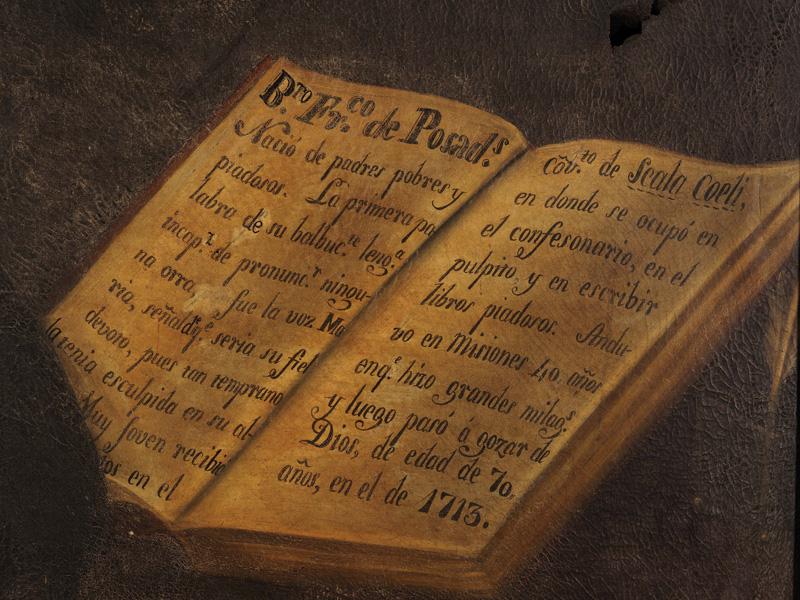 B.to Fr.co de Posad.s
Nació de padres pobres y
piadosos. La primera pa
labra de su balbuc.te leng.a
incap.z de pronunc.r ningu-
na otra, fue la voz Ma
ria, señal dq.e seria su fiel
devoto, pues tan temprano
la tenia esculpida en su al-
Muy Joven recibio
os en el
Cōv.to de Scala Coeli,
en donde se ocupó en
el confesonario, en el
pulpito, y en escribir
libros piadosos. Andu-
vo en Misiones 40. años
enq.e hizo grandes milag.s
y luego pasó á gozar de
Dios, de edad de 70,
años, en el de 1713.